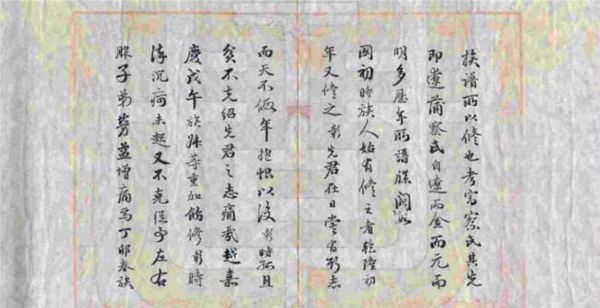 族譜所以修也考富察氏其先
即遼蒲察氏自遼而金而元而
明多歷年所譜牒闕如
國初時族人始有修之者乾隆初
年又修之彰先君在日嘗有斯志
而天不假年抱恨以沒彰時孤且
貧不克紹先君之志痛哉越嘉
慶戊午族孫等重加修彰時
沉疴未起又不克從予左右
子弟勞益增痛焉丁卯春族